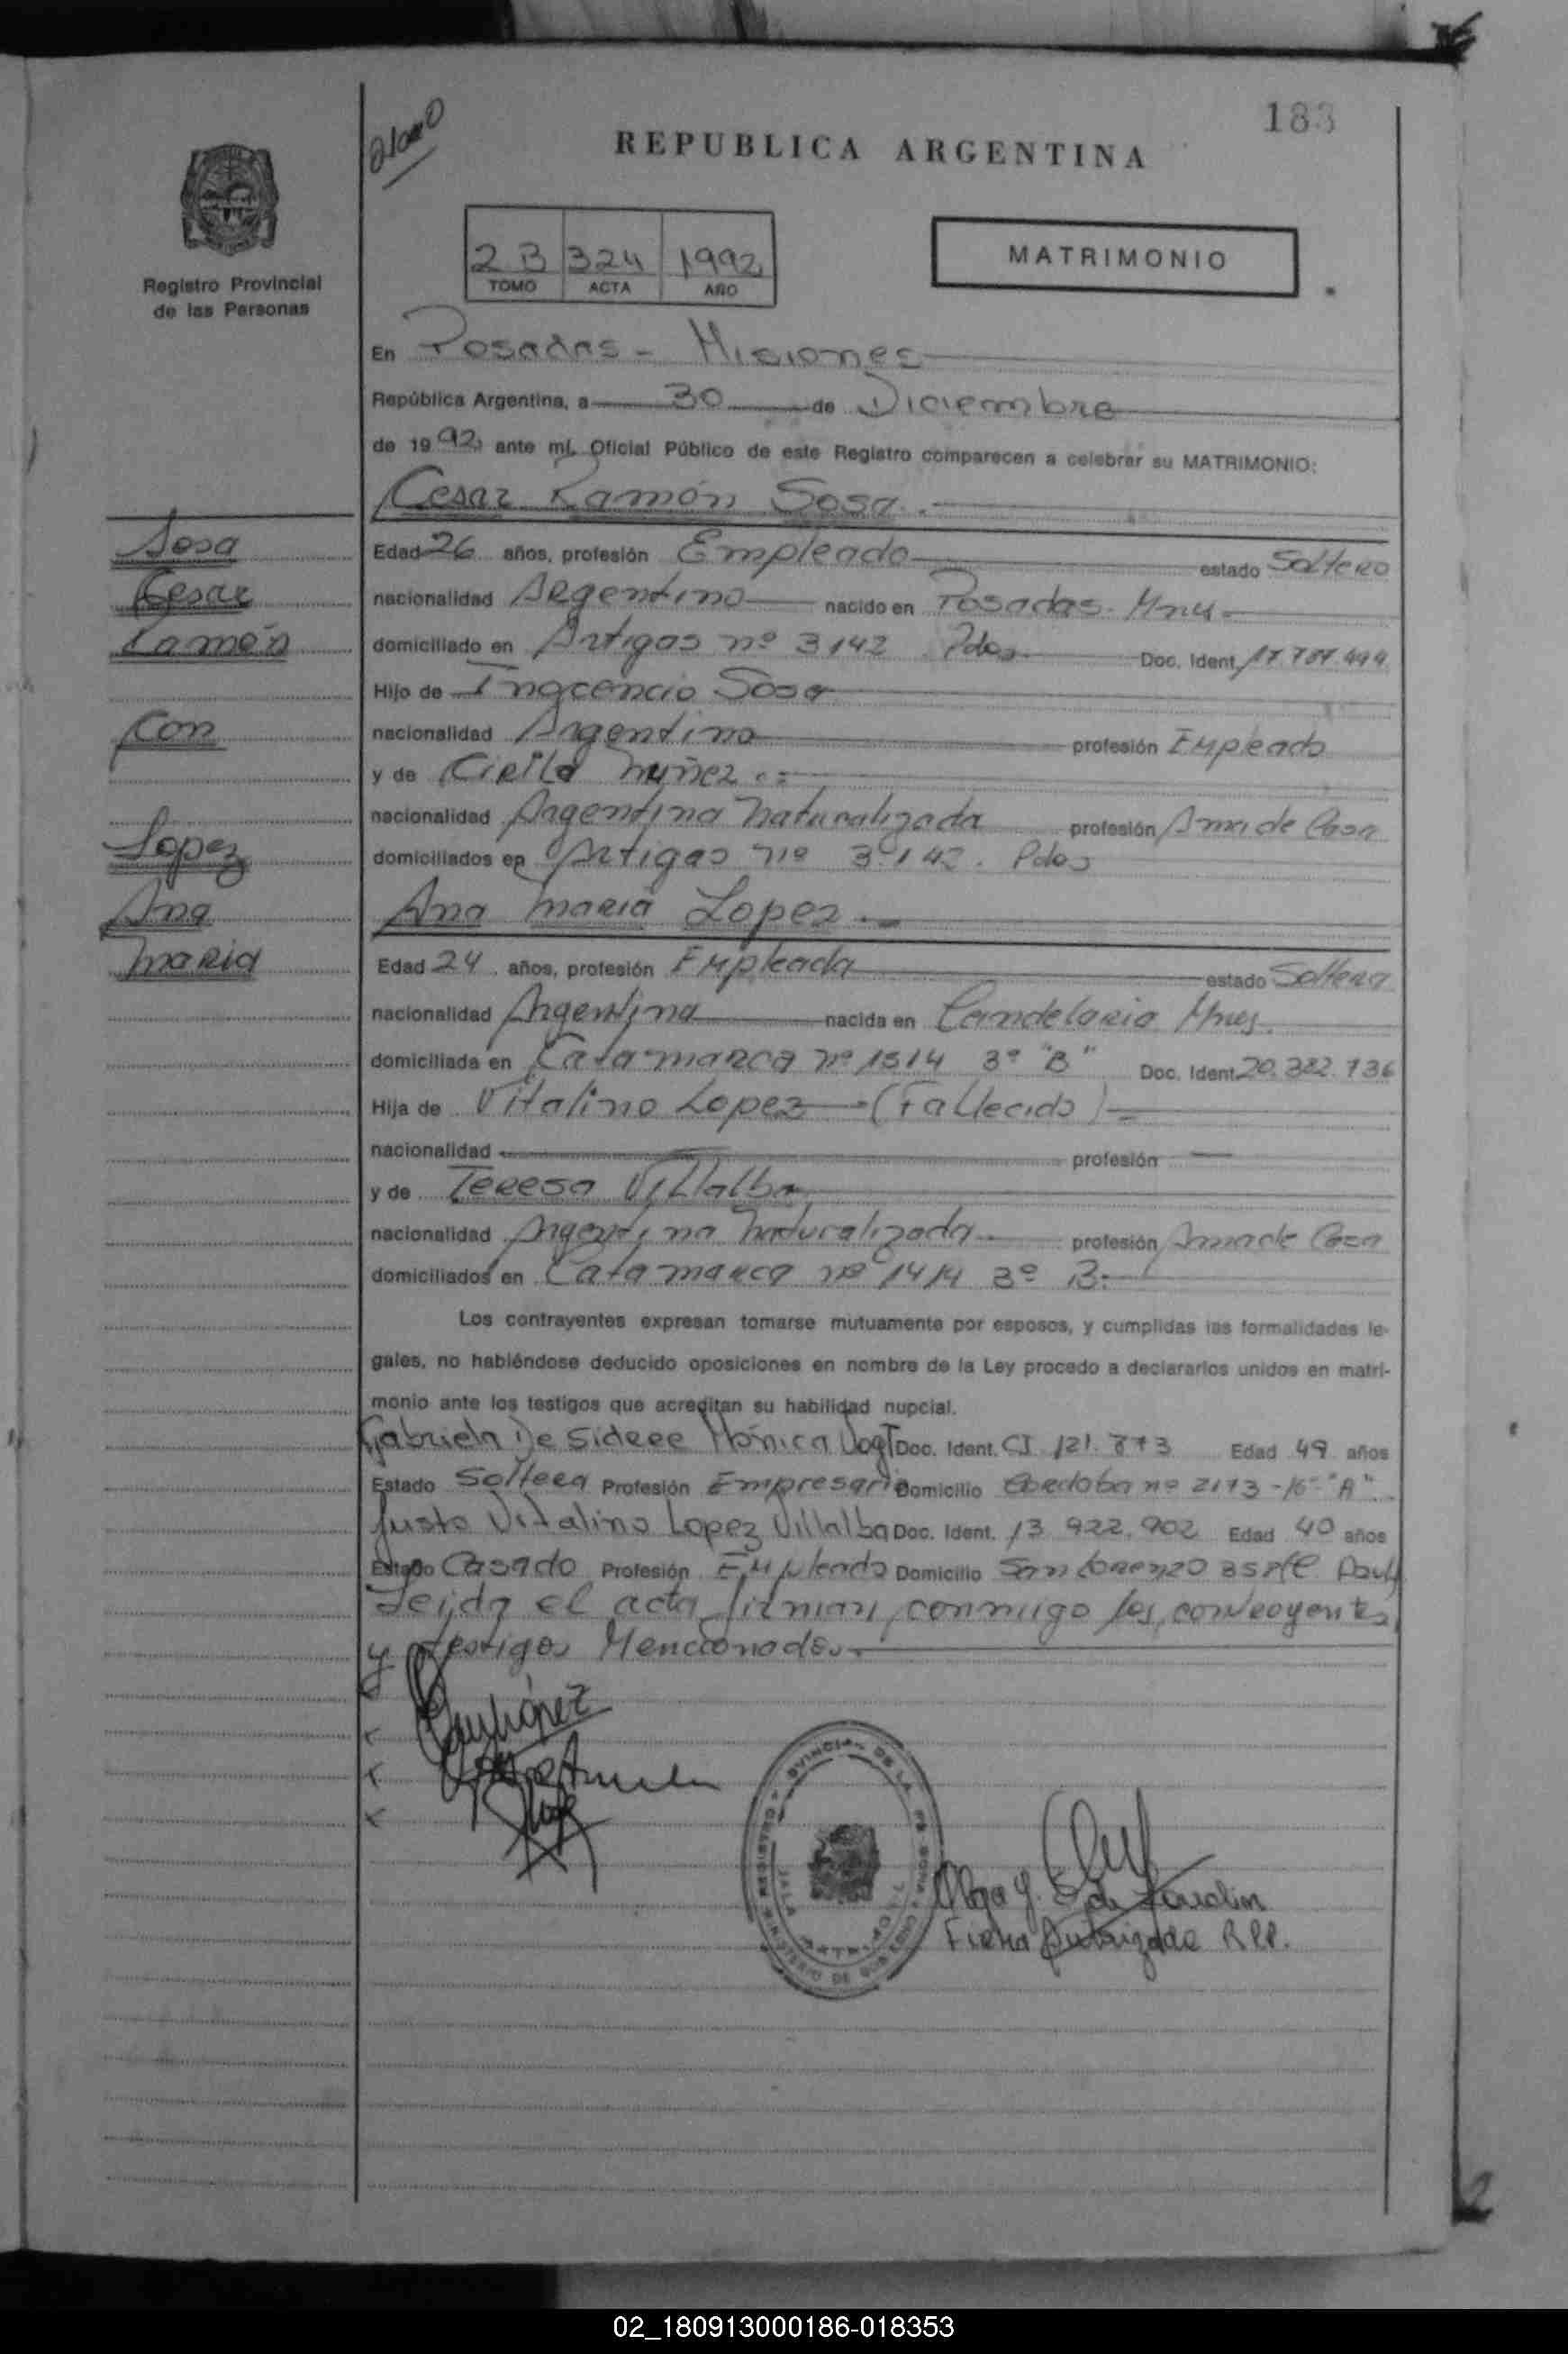 183
REPUBLICA ARGENTINA
2B 324 1992
TOMO ACTA AÑO
MATRIMONIO
Registro Provincial
de las Personas
En Posadas - Misiones
República Argentina, a 30 de Diciembre
de 1992 ante mí, Oficial Público de este Registro comparecen a celebrar su MATRIMONIO:
Cesar Ramón Sosa.
Sosa
Cesar
Ramón
Con
Lopez
Ana
Maria
Edad 26 años, profesión Empleado estado Soltero
nacionalidad Argentino nacido en Posadas. Mnes
domiciliado en Artigas nº 3142 Pdas Doc. Ident.
Hijo de Inocencio Sosa
nacionalidad Argentino profesión Empleado
y de Cirila Nuñez
nacionalidad Argentina Naturalizada profesión Ama de Casa
domiciliados en Artigas nº 3142. Pdas
Ana Maria Lopez
Edad 24 años, profesión Empleada estado Soltera
nacionalidad Argentina nacida en Candelaria Mnes.
domiciliada en Catamarca nº 1514 3º "B" Doc. Ident.
Hija de Vitalino Lopez (Fallecido)
nacionalidad profesión
y de Teresa Villalba
nacionalidad Argentina Naturalizada profesión Ama de Casa
domiciliados en Catamarca nº 1414 3º B.
Los contrayentes expresan tomarse mutuamente por esposos, y cumplidas las formalidades le-
gales, no habiéndose deducido oposiciones en nombre de la Ley procedo a declararlos unidos en matri-
monio ante los testigos que acreditan su habilidad nupcial.
Gabriela Mónica Vogt Doc. Ident. CI Edad 49 años
Estado Soltera Profesión Empresaria Domicilio Cordoba nº 2173 "A"
Justo Vitalino Lopez Villalba Doc. Ident. 13.922.902 Edad 40 años
Estado Casado Profesión Empleado Domicilio San Lorenzo
Leida el acta firman conmigo los contrayentes
y testigos Mencionados
Firma Autorizada R.P.P.
02_180913000186-018353